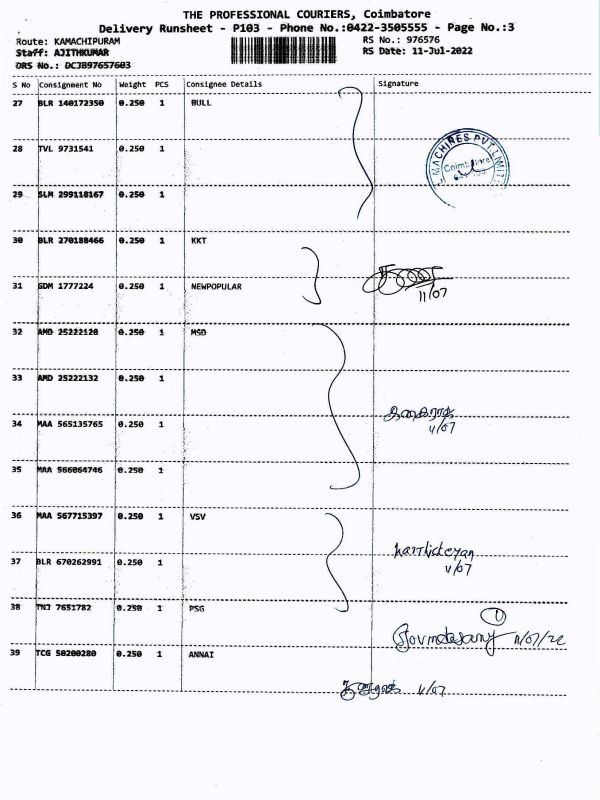 THE PROFESSIONAL COURIERS, Coimbatore
Delivery Runsheet - P103 - Phone No.:0422-3505555 - Page No.:3
Route: KAMACHIPURAM RS No.: 976576
Staff: AJITHKUMAR RS Date: 11-Jul-2022
DRS No.: DCJB97657603
S No Consignment No Weight PCS Consignee Details Signature
27 BLR 140172350 0.250 1 BULL
MACHINES PVT LIMIT
Coimbatore
28 TVL 9731541 0.250 1
29 SLM 299118167 0.250 1
30 BLR 270188466 0.250 1 KKT
31 GDM 1777224 0.250 1 NEWPOPULAR
11/07
32 AMD 25222128 0.250 1 MSD
33 AMD 25222132 0.250 1
34 MAA 565135765 0.250 1
11/07
35 MAA 566064746 0.250 1
36 MAA 567715397 0.250 1 VSV
Karthickeyan
37 BLR 670262991 0.250 1
11/07
38 TNJ 7651782 0.250 1 PSG
1
Govindasamy 11/07/22
39 TCG 50200280 0.250 1 ANNAI
11/07